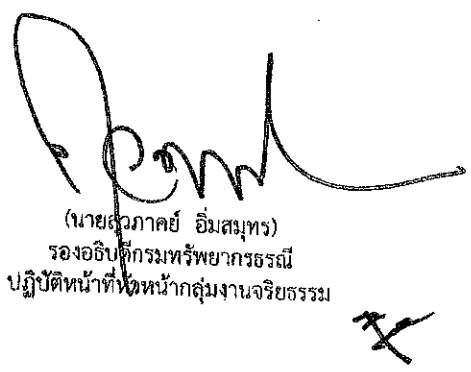 (นายสุวภาคย์ อิ่มสมุทร)
รองอธิบดีกรมทรัพยากรธรณี
ปฏิบัติหน้าที่หัวหน้ากลุ่มงานจริยธรรม